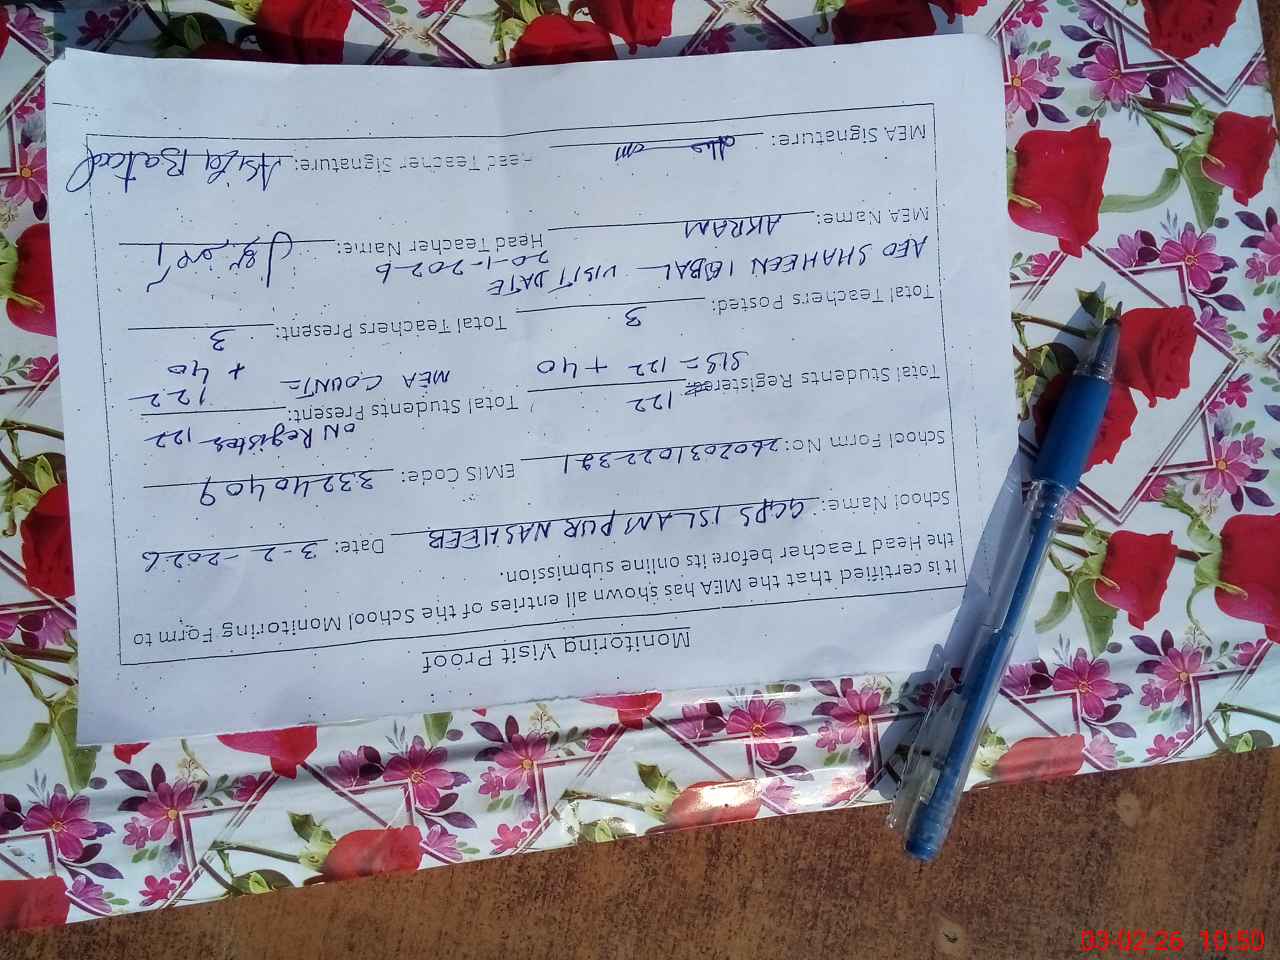 Monitoring Visit Proof
It is certified that the MEA has shown all entries of the School Monitoring Form to
the Head Teacher before its online submission.
School Name: GGPS ISLAM PUR NASHEEB Date: 3-2-2026
School Form No: 2602031022391 EMIS Code: 33240409
ON Register 122
Total Students Registered 122 Total Students Present:
SIS = 122 + 40 MEA COUNT = 122 + 40
Total Teachers Posted: 3 Total Teachers Present: 3
AEO SHAHEEN IQBAL VISIT DATE 20-1-2026
MEA Name: AKRAM Head Teacher Name:
MEA Signature: Head Teacher Signature: Asifa Batool
03-02-26 10:50